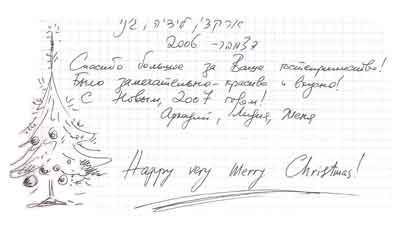 ארקדי, לידיה, ג'ני
דצמבר - 2006
Спасибо большое за Ваше гостеприимство!
Было замечательно - красиво и вкусно!
С Новым, 2007 годом!
Аркадий, Лидия, Женя
Happy very merry Christmas!